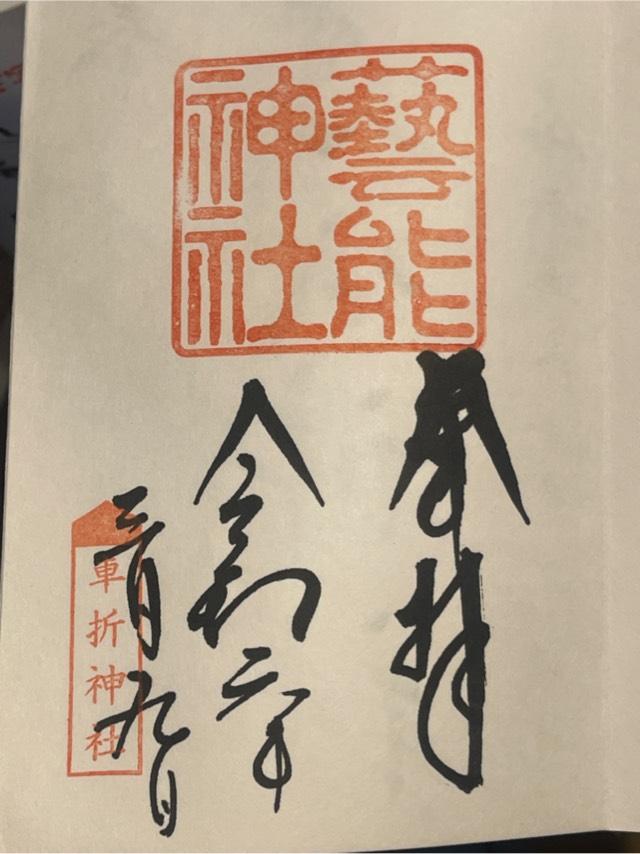 藝能
神社
奉拝
令和二年
三月九日
車折神社